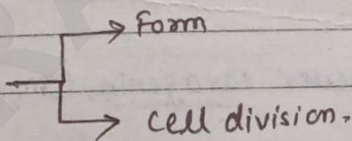 Form
cell division.